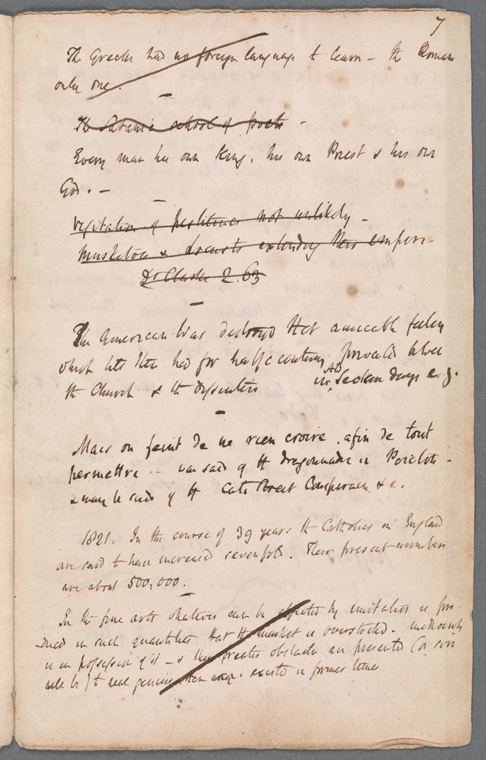 7
The Greeks had no foreign language to learn – the Romans
only one.
The Satanic school of poets –
Every man his own King, his own Priest & his own
God. –
Visitation of Pestilence not unlikely –
Musketoes & Locusts extending their empire
Dr Clarke 2. 63
The American War destroyed that amicable feeling
which till then had for half a century prevailed between
the Church & the Dissenters in Seckers days e. g.
Mais on feint de ne rien croire, afin de tout
permettre – was said of the dragonnade in Poictou –
& may be said of the Cato Street Conspiracy &c.
1821. In the course of 39 years the Catholics in England
are said to have increased sevenfold. Their present numbers
are about 500,000.
In the fine arts whatever can be effected by imitation is pro-
duced in such quantities that the market is overstocked. mediocrity
is in possession of it – & thus greater obstacles are presented
to real genius than ever existed in former times